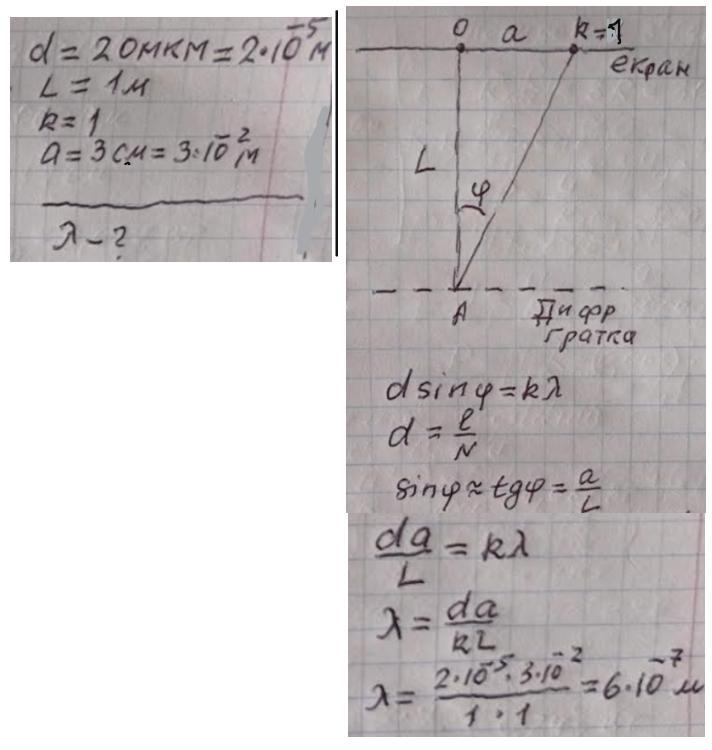 d = 20мкм = 2·10⁻⁵ м
L = 1м
k = 1
a = 3см = 3·10⁻² м
λ - ?
O a k=1
екран
L
φ
A
Дифр
гратка
d sinφ = kλ
d = ℓ/N
sinφ ≈ tgφ = a/L
da/L = kλ
λ = da/kL
λ = 2·10⁻⁵·3·10⁻²/1·1 = 6·10⁻⁷ м